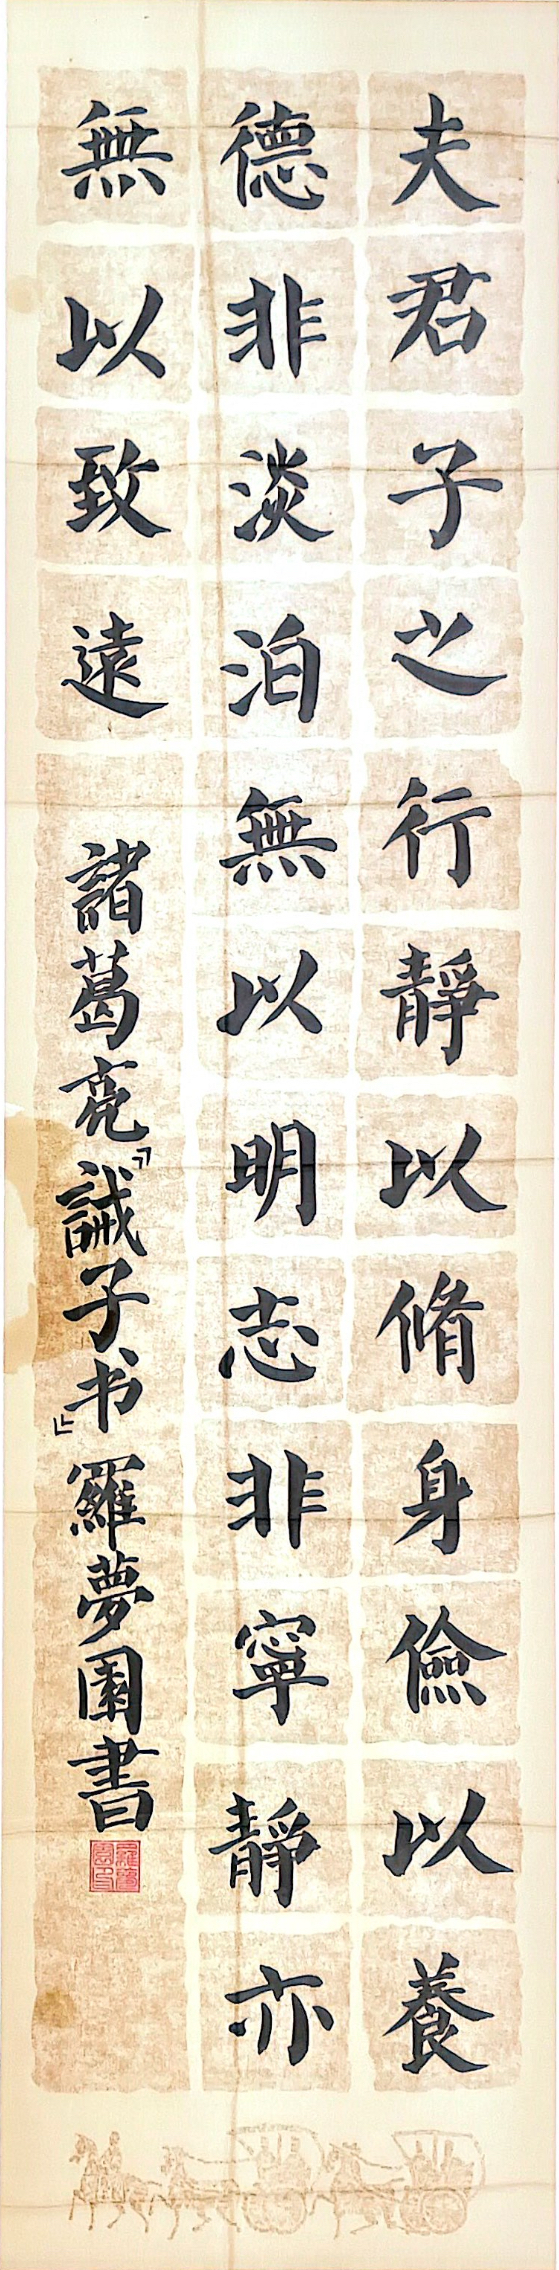 夫君子之行靜以脩身儉以養
德非淡泊無以明志非寧靜亦
無以致遠 諸葛亮『誡子书』羅夢園書